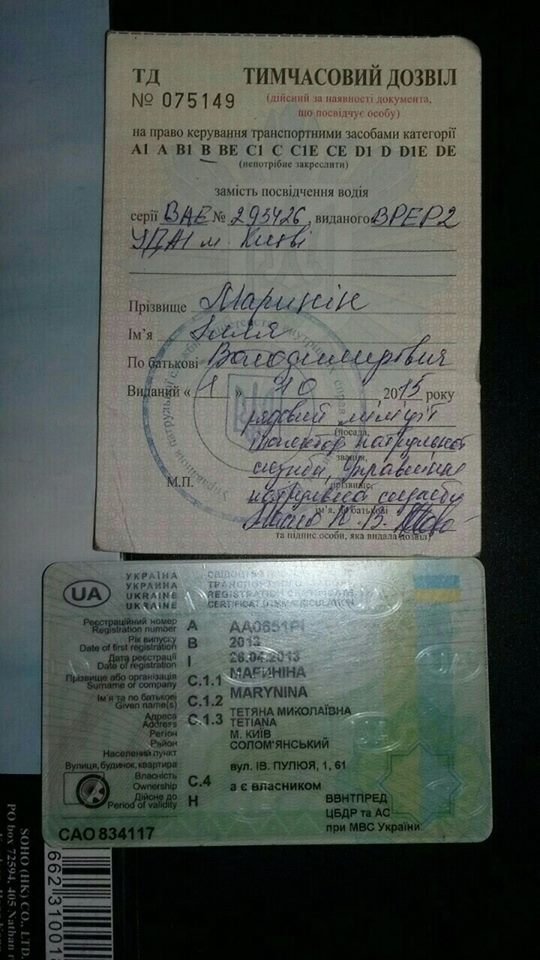 ТД ТИМЧАСОВИЙ ДОЗВІЛ
№ 075149 (дійсний за наявності документа,
що посвідчує особу)
на право керування транспортними засобами категорії
A1 A B1 B BE C1 C C1E CE D1 D D1E DE
(непотрібне закреслити)
замість посвідчення водія
серії ВАЕ № 295426, виданого ВРЕР2
УДАІ м. Києві
Прізвище Маринін
Ім’я Ілля
По батькові Володимирович
Виданий « 1 » 10 2015 року
рядовий міліції
(посада,
інспектор патрульної
звання,
служби, Управління
прізвище,
патрульної служби
М.П.
ім’я, по батькові
та підпис особи, яка видала дозвіл)
UA
УКРАЇНА
УКРАИНА
UKRAINE
UKRAINE
REGISTRATION CERTIFICATE
Реєстраційний номер A AA0651PI
Registration number
Рік випуску B 2013
Date of first registration
Дата реєстрації I 26.04.2013
Date of registration
Прізвище або організація C.1.1 МАРИНІНА
Surname or company MARYNINA
Ім'я та по батькові C.1.2 ТЕТЯНА МИКОЛАЇВНА
Given name(s) TETIANA
Адреса C.1.3
Address
Регіон М. КИЇВ
Район СОЛОМ'ЯНСЬКИЙ
Населений пункт
Вулиця, будинок, квартира вул. ІВ. ПУЛЮЯ, 1, 61
Власність C.4 a є власником
Ownership
Дійсне до H
Period of validity
ВВНТПРЕД
ЦБДР та АС
при МВС України
САО 834117
SOHO (HK) CO., LTD.
PO box 72594, 405 Nathan
66231001